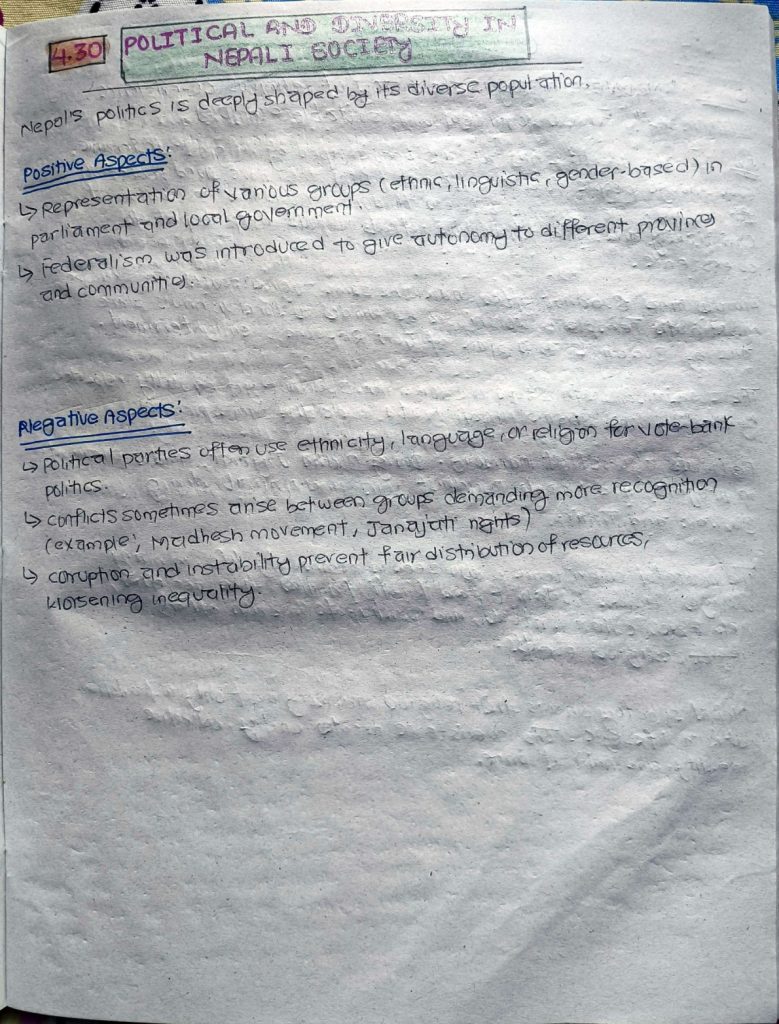 4.30
POLITICAL AND DIVERSITY IN
NEPALI SOCIETY
Nepal's politics is deeply shaped by its diverse population.
Positive Aspects:
↳ Representation of various groups (ethnic, linguistic, gender-based) in
parliament and local government.
↳ Federalism was introduced to give autonomy to different provinces
and communities.
Negative Aspects:
↳ Political parties often use ethnicity, language, or religion for vote-bank
politics.
↳ conflicts sometimes arise between groups demanding more recognition
(example; Madhesh movement, Janajati rights)
↳ coruption and instability prevent fair distribution of resources,
worsening inequality.